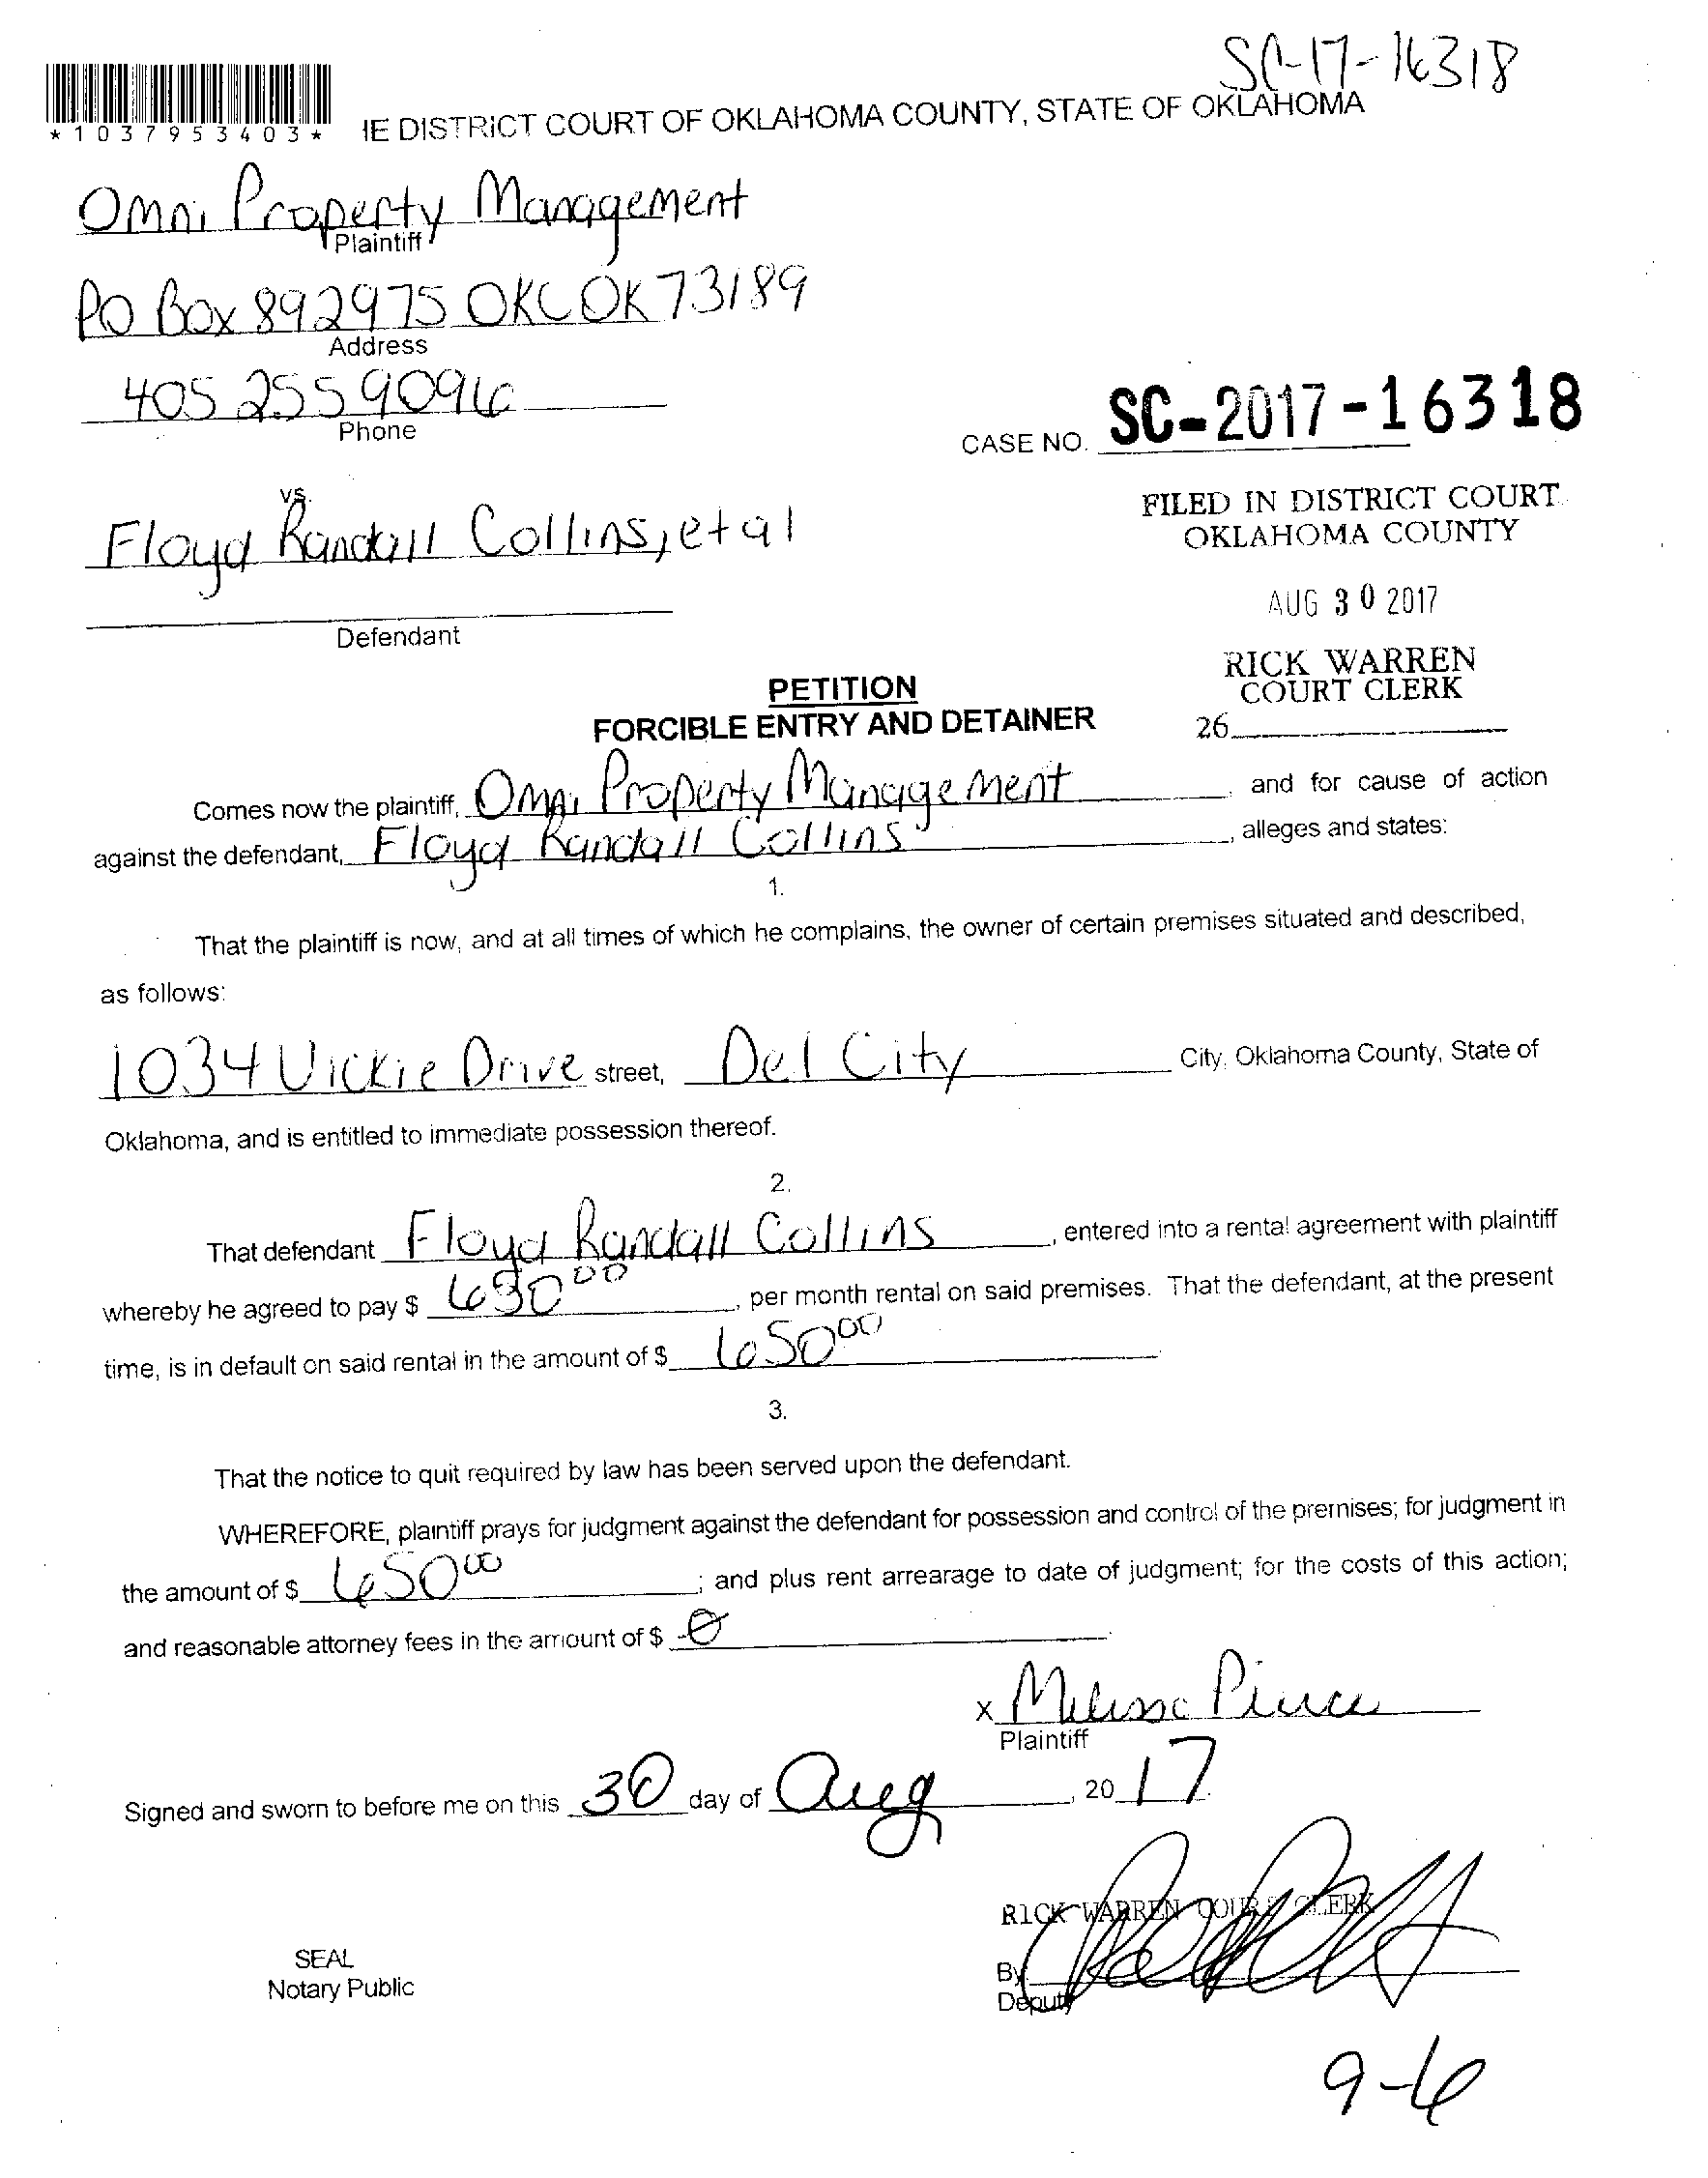 SC-17-16318
*1037953403*
IE DISTRICT COURT OF OKLAHOMA COUNTY, STATE OF OKLAHOMA
Omni Property Management
Plaintiff
PO Box 892975 OKC OK 73189
Address
405 255 9096
Phone
CASE NO. SC-2017-16318
vs.
FILED IN DISTRICT COURT
OKLAHOMA COUNTY
Floyd Randall Collins, et al
AUG 30 2017
Defendant
RICK WARREN
COURT CLERK
26
PETITION
FORCIBLE ENTRY AND DETAINER
Comes now the plaintiff, Omni Property Management, and for cause of action
against the defendant, Floyd Randall Collins, alleges and states:
1.
That the plaintiff is now, and at all times of which he complains, the owner of certain premises situated and described,
as follows:
1034 Vickie Drive street, Del City City, Oklahoma County, State of
Oklahoma, and is entitled to immediate possession thereof.
2.
That defendant Floyd Randall Collins, entered into a rental agreement with plaintiff
whereby he agreed to pay $ 00, per month rental on said premises. That the defendant, at the present
time, is in default on said rental in the amount of $ 650 00
3.
That the notice to quit required by law has been served upon the defendant.
WHEREFORE, plaintiff prays for judgment against the defendant for possession and control of the premises; for judgment in
the amount of $ 650 00; and plus rent arrearage to date of judgment; for the costs of this action;
and reasonable attorney fees in the amount of $ 0
x Melissa Pierce
Plaintiff
Signed and sworn to before me on this 30 day of Aug, 20 17.
RICK WARREN COURT CLERK
SEAL
Notary Public
By
Deputy
9-6